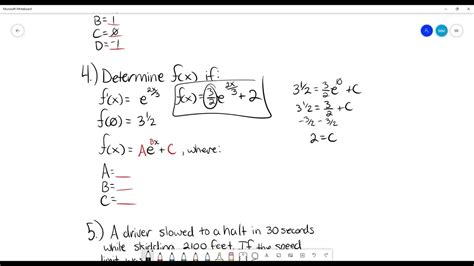 Microsoft Whiteboard
B=1
C=0
D=-1
4.) Determine f(x) if:
f'(x) = e^(2x/3)
f(x)= 3/2 e^(2x/3) + 2
f(0) = 3 1/2
f(x) = Ae^(Bx) + C, where:
A=__
B=__
C=__
3 1/2 = 3/2 e^0 + C
3 1/2 = 3/2 + C
-3/2 -3/2
2 = C
5.) A driver slowed to a halt in 30 seconds
while skidding 2100 feet. If the speed